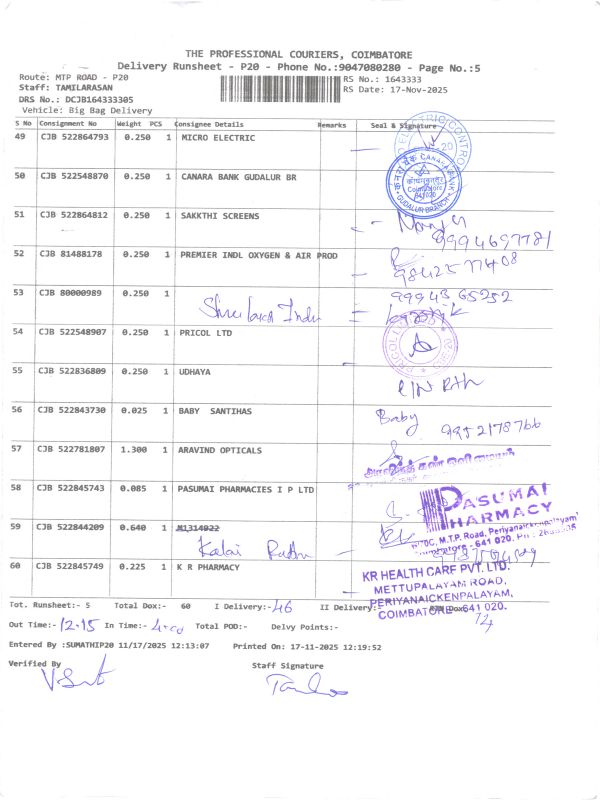 THE PROFESSIONAL COURIERS, COIMBATORE
Delivery Runsheet - P20 - Phone No.:9047080280 - Page No.:5
Route: MTP ROAD - P20
RS No.: 1643333
Staff: TAMILARASAN
RS Date: 17-Nov-2025
DRS No.: DCJB164333305
Vehicle: Big Bag Delivery
S No Consignment No Weight PCS Consignee Details Remarks Seal & Signature
49 CJB 522864793 0.250 1 MICRO ELECTRIC
50 CJB 522548870 0.250 1 CANARA BANK GUDALUR BR
CANARA BANK
Coimbatore
641020
GUDALUR BRANCH
51 CJB 522864812 0.250 1 SAKKTHI SCREENS
9994697781
52 CJB 81488178 0.250 1 PREMIER INDL OXYGEN & AIR PROD
9842577408
53 CJB 80000989 0.250 1
9994365252
54 CJB 522548907 0.250 1 PRICOL LTD
55 CJB 522836809 0.250 1 UDHAYA
56 CJB 522843730 0.025 1 BABY SANTIHAS
Baby
9952178766
57 CJB 522781807 1.300 1 ARAVIND OPTICALS
58 CJB 522845743 0.085 1 PASUMAI PHARMACIES I P LTD
PASUMAI
PHARMACY
M.T.P. Road, Periyanaickenpalayam
641 020.
59 CJB 522844209 0.640 1 M1314922
Kalai
60 CJB 522845749 0.225 1 K R PHARMACY
KR HEALTH CARE PVT. LTD.
METTUPALAYAM ROAD,
PERIYANAICKENPALAYAM,
COIMBATORE - 641 020.
Tot. Runsheet:- 5 Total Dox:- 60 I Delivery:- 46 II Delivery:-
14
Out Time:- 12.15 In Time:- Total POD:- Delvy Points:-
Entered By :SUMATHIP20 11/17/2025 12:13:07 Printed On: 17-11-2025 12:19:52
Verified By Staff Signature